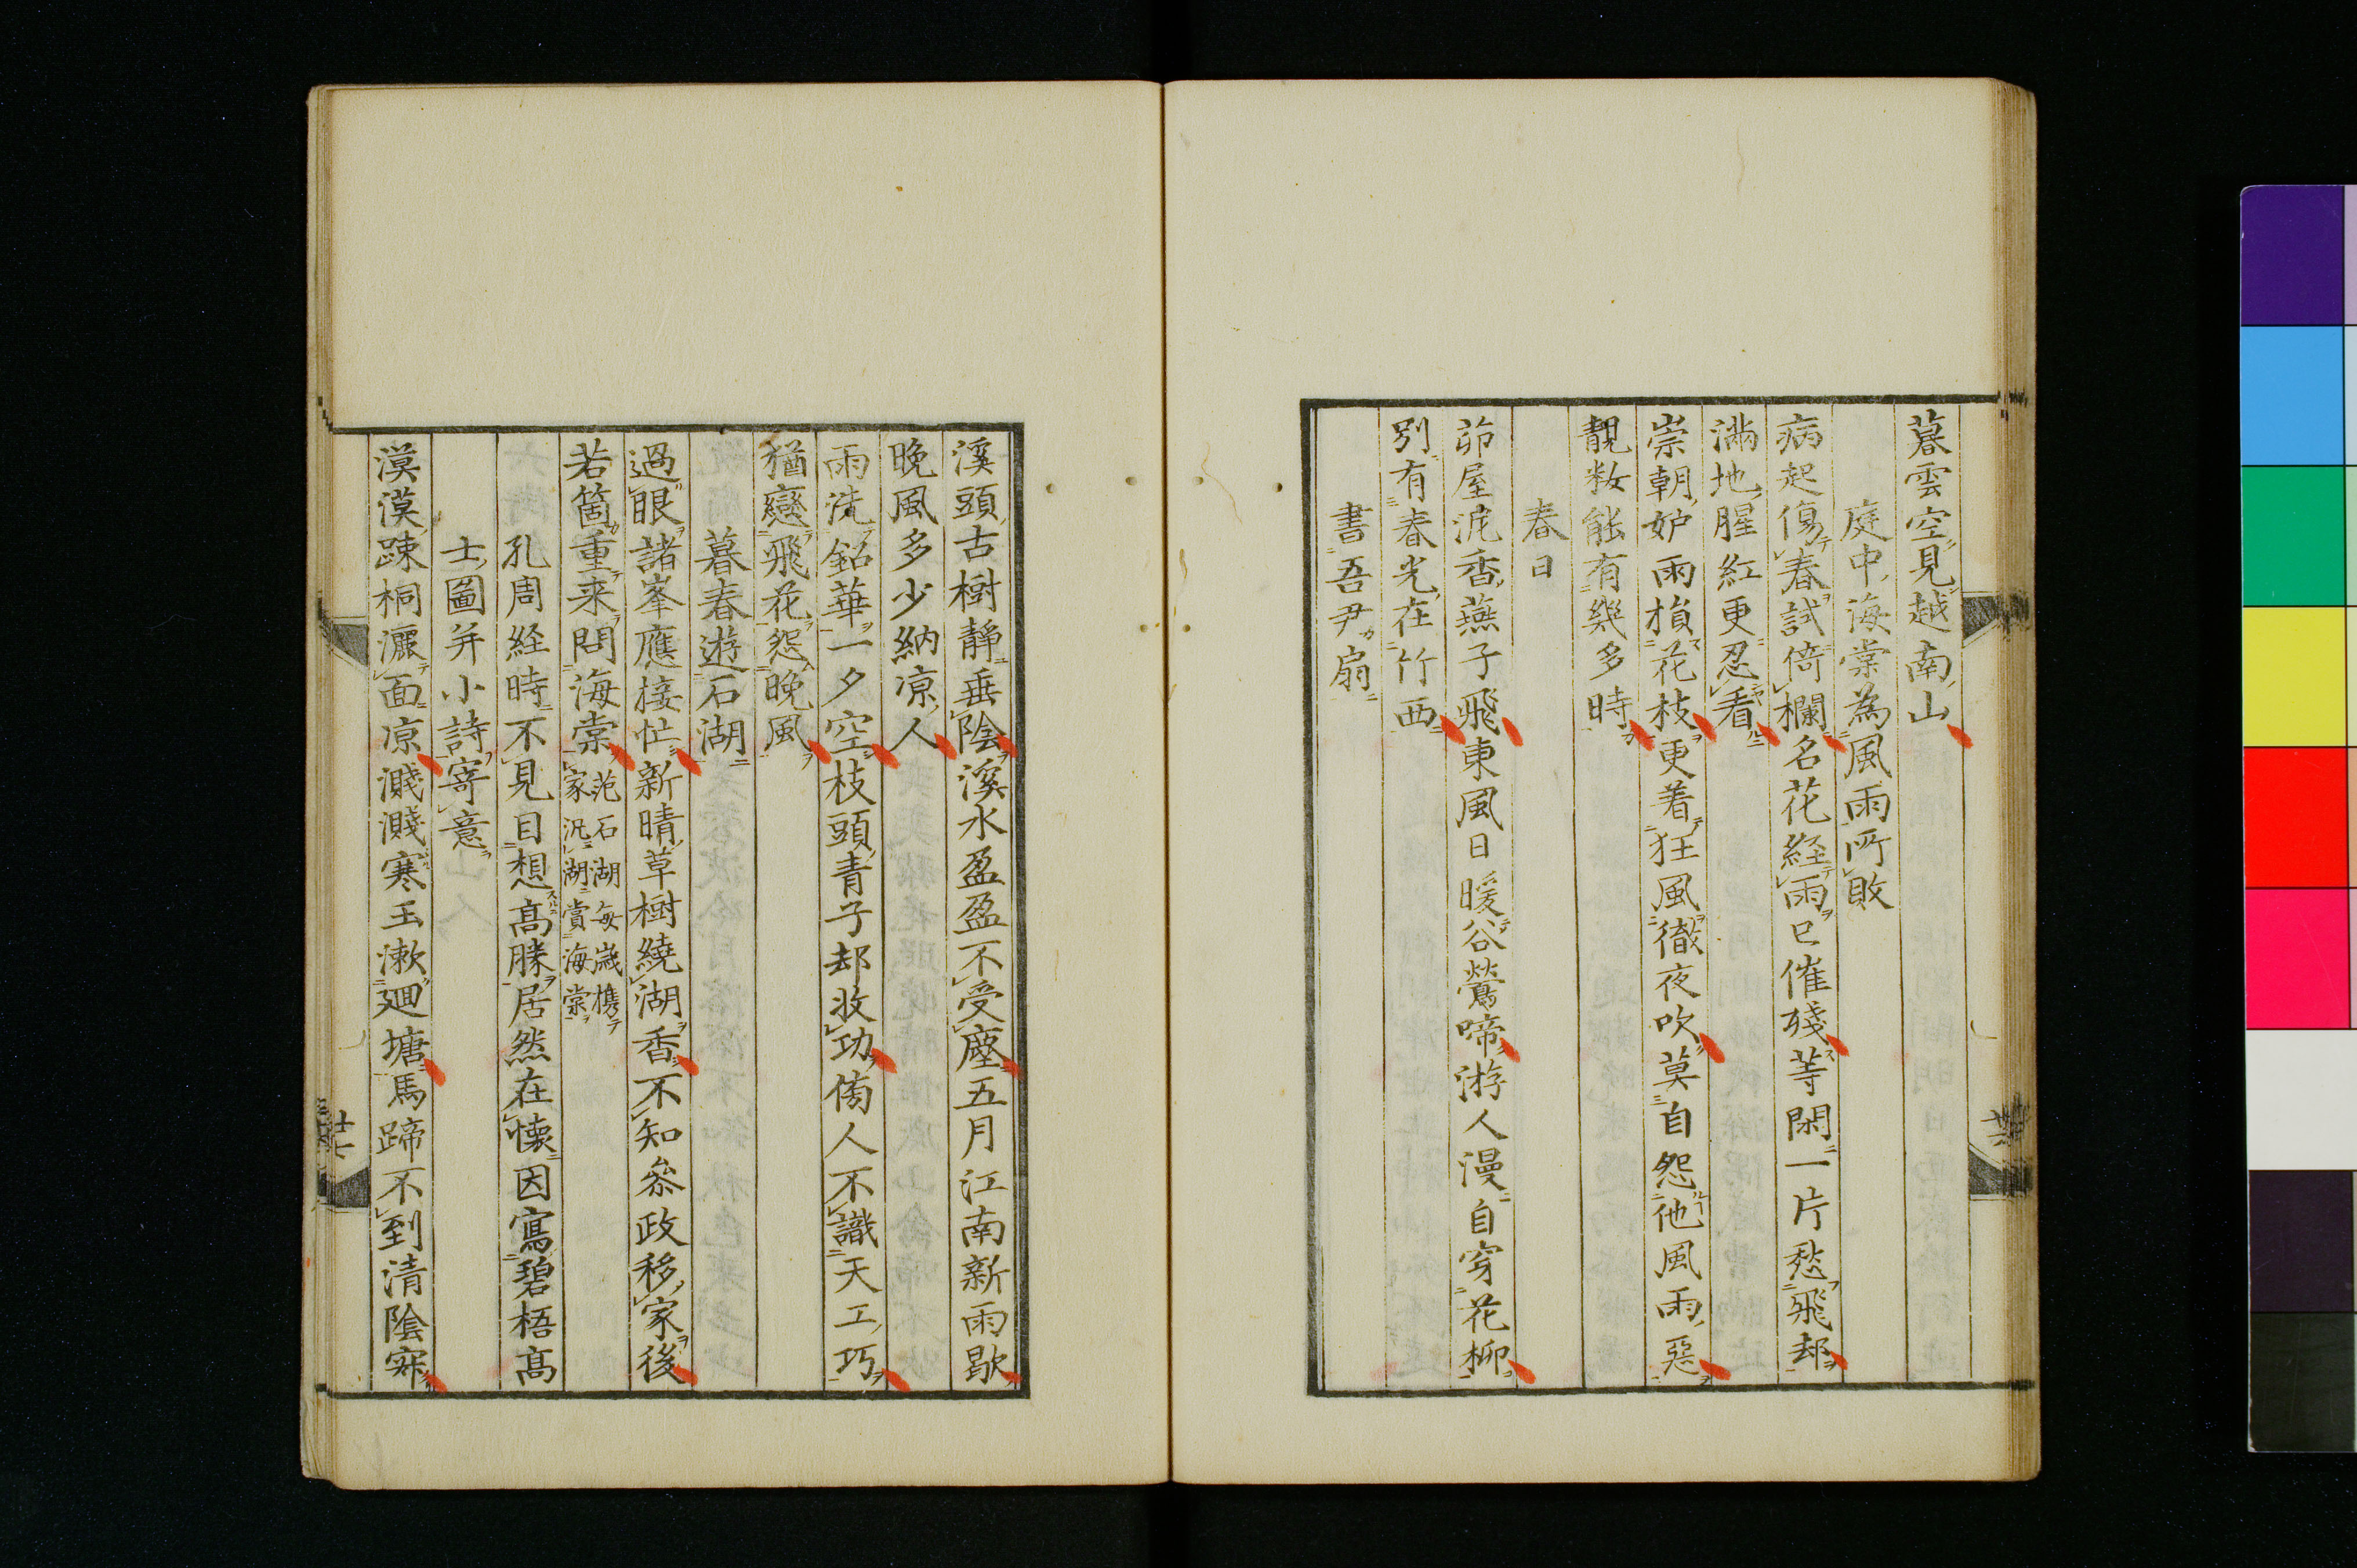 暮雲空見越南山
庭中海棠為風雨所敗
病起傷春試倚欄名花経雨已催殘等閑一片愁飛却
滿地腥紅更忍看
崇朝妒雨損花枝更着狂風徹夜吹莫自怨他風雨惡
靚粧能有幾多時
春日
茆屋泥香燕子飛東風日暖谷鶯啼游人漫自穿花柳
別有春光在竹西
書吾尹扇
溪頭古樹靜垂陰溪水盈盈不受塵五月江南新雨歇
晚風多少納凉人
雨洗鉛華一夕空枝頭青子却收功傍人不識天工巧
猶戀飛花怨晚風
暮春遊石湖
過眼諸峯應接忙新晴草樹繞湖香不知叅政移家後
若箇重来問海棠范石湖每歳携
家汎湖賞海棠
孔周経時不見日想高勝居然在懐因寫碧梧高
士圖并小詩寄意
漠漠踈桐灑面凉濺濺寒玉漱廻塘馬蹄不到清陰寂